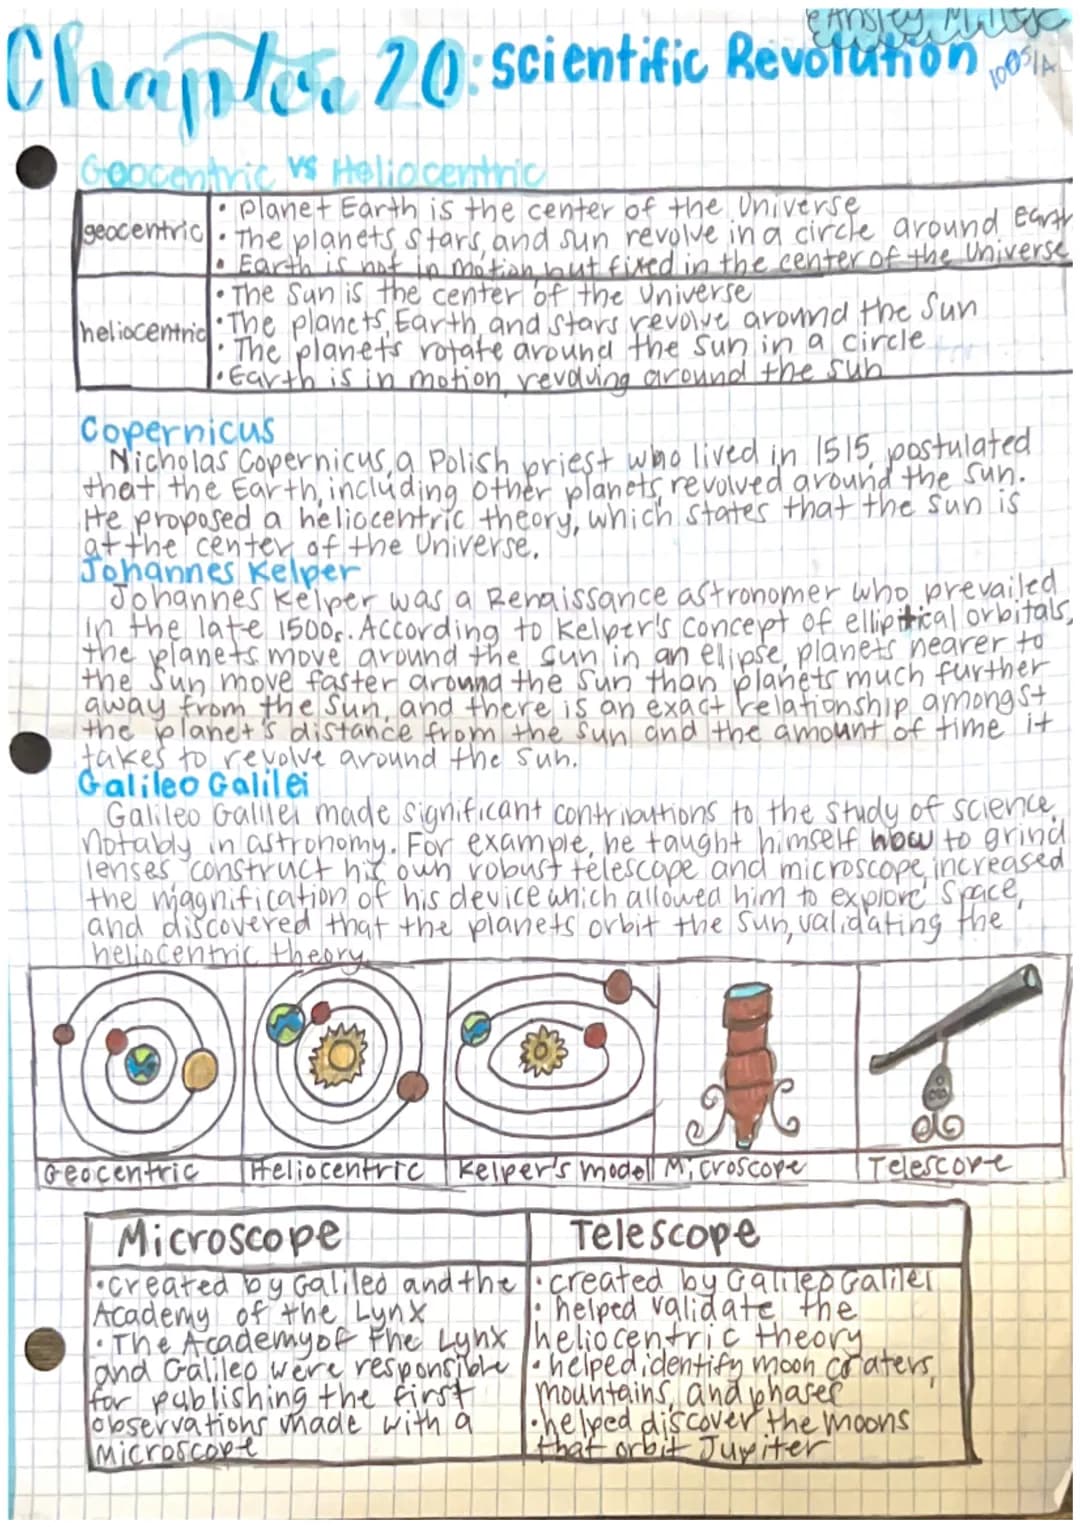 Ansley
Chapter 20: Scientific Revolution
100%/A
Geocentric vs Heliocentric
geocentric
• Planet Earth is the center of the Universe
• The planets, stars, and sun revolve in a circle around Earth
• Earth is not in motion but fixed in the center of the Universe
heliocentric
• The Sun is the center of the Universe
• The planets, Earth, and stars revolve around the Sun
• The planets rotate around the sun in a circle
• Earth is in motion, revolving around the sun
Copernicus
Nicholas Copernicus, a Polish priest who lived in 1515, postulated
that the Earth, including other planets, revolved around the sun.
He proposed a heliocentric theory, which states that the sun is
at the center of the Universe.
Johannes Kelper
Johannes Kelper was a Renaissance astronomer who prevailed
in the late 1500s. According to Kelper's concept of elliptical orbitals,
the planets move around the sun in an ellipse, planets nearer to
the sun move faster around the sun than planets much further
away from the sun, and there is an exact relationship amongst
the planet's distance from the sun and the amount of time it
takes to revolve around the sun.
Galileo Galilei
Galileo Galilei made significant contributions to the study of science,
Notably in astronomy. For example, he taught himself how to grind
lenses construct his own robust telescope and microscope, increased
the magnification of his device which allowed him to explore space,
and discovered that the planets orbit the sun, validating the
heliocentric theory.
Geocentric
Heliocentric
Kelper's model
Microscope
Telescope
Microscope
• created by Galileo and the
Academy of the Lynx
• The Academy of the Lynx
and Galileo were responsible
for publishing the first
observations made with a
Microscope
Telescope
• created by Galileo Galilei
• helped validate the
heliocentric theory
• helped identify moon craters,
mountains, and phases
• helped discover the moons
that orbit Jupiter